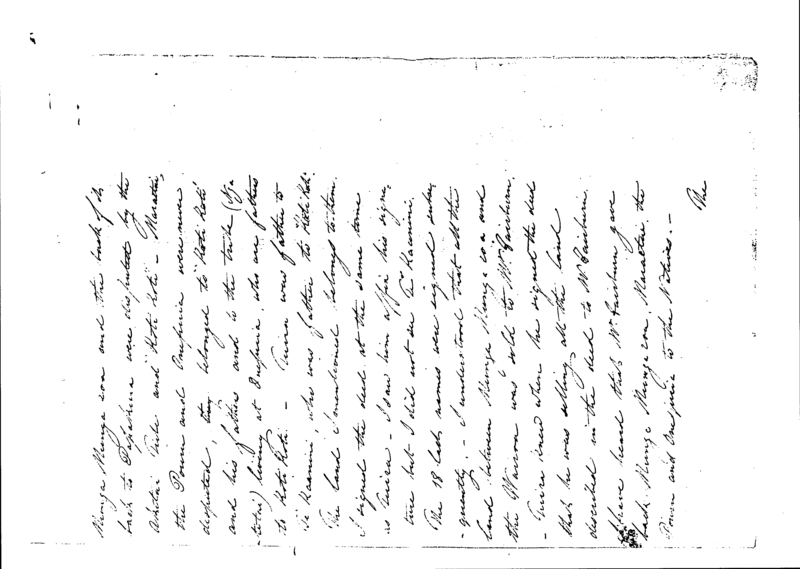 Munga Munga roa and the back of it
back to were disputed by the
and "Koti Koti" - Maraetai,
the Powen and Onepuia were never
disputed, they belonged to "Koti Koti"
and his fathers and is the tribe (Nga
) living at Onepuia, who are fathers
to Koti Koti - Tuira was father to
Te Kaamu, who was father to "Koti Koti".
The land I mentioned belongs to them.
I signed the deed at the same time
as Tuira - I saw him affix his signa-
ture but I did not see Te Kaamu.
The 18 last names were signed subse-
-quently. - I understood that all the
land between Munga Munga roa and
the Wairoa was sold to Mr. Fairburn,
- Tuira knew when he signed the deed
that he was selling all the land
described in the deed to Mr Fairburn.
I have heard that Mr Fairburn gave
back Munga Munga roa, Maraetai the
Powen and Onepuia to the Natives. -
The